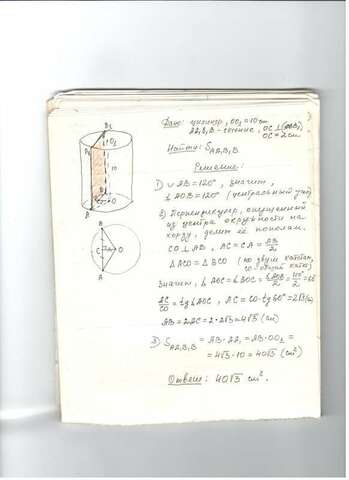 Дано: цилиндр, OO₁ = 10 см
AA₁B₁B - сечение, OC ⊥ (AA₁B₁)
OC = 2 см
Найти: S AA₁B₁B
Решение:
1) ∪ AB = 120°, значит,
∠ AOB = 120° (центральный угол)
2) Перпендикуляр, опущенный
из центра окружности на
хорду, делит её пополам.
CO ⊥ AB, AC = CA = AB/2
△ ACO = △ BCO (по двум катетам,
CO - общий катет)
Значит, ∠ AOC = ∠ BOC = ∠AOB/2 = 120°/2 = 60°
AC/CO = tg ∠ AOC, AC = CO · tg 60° = 2√3 (см)
AB = 2AC = 2 · 2√3 = 4√3 (см)
3) S AA₁B₁B = AB · AA₁ = AB · OO₁ =
= 4√3 · 10 = 40√3 (см²)
Ответ: 40√3 см².
B₁
O₁
A₁
10
B
C
O
A
B
C
2
O
A